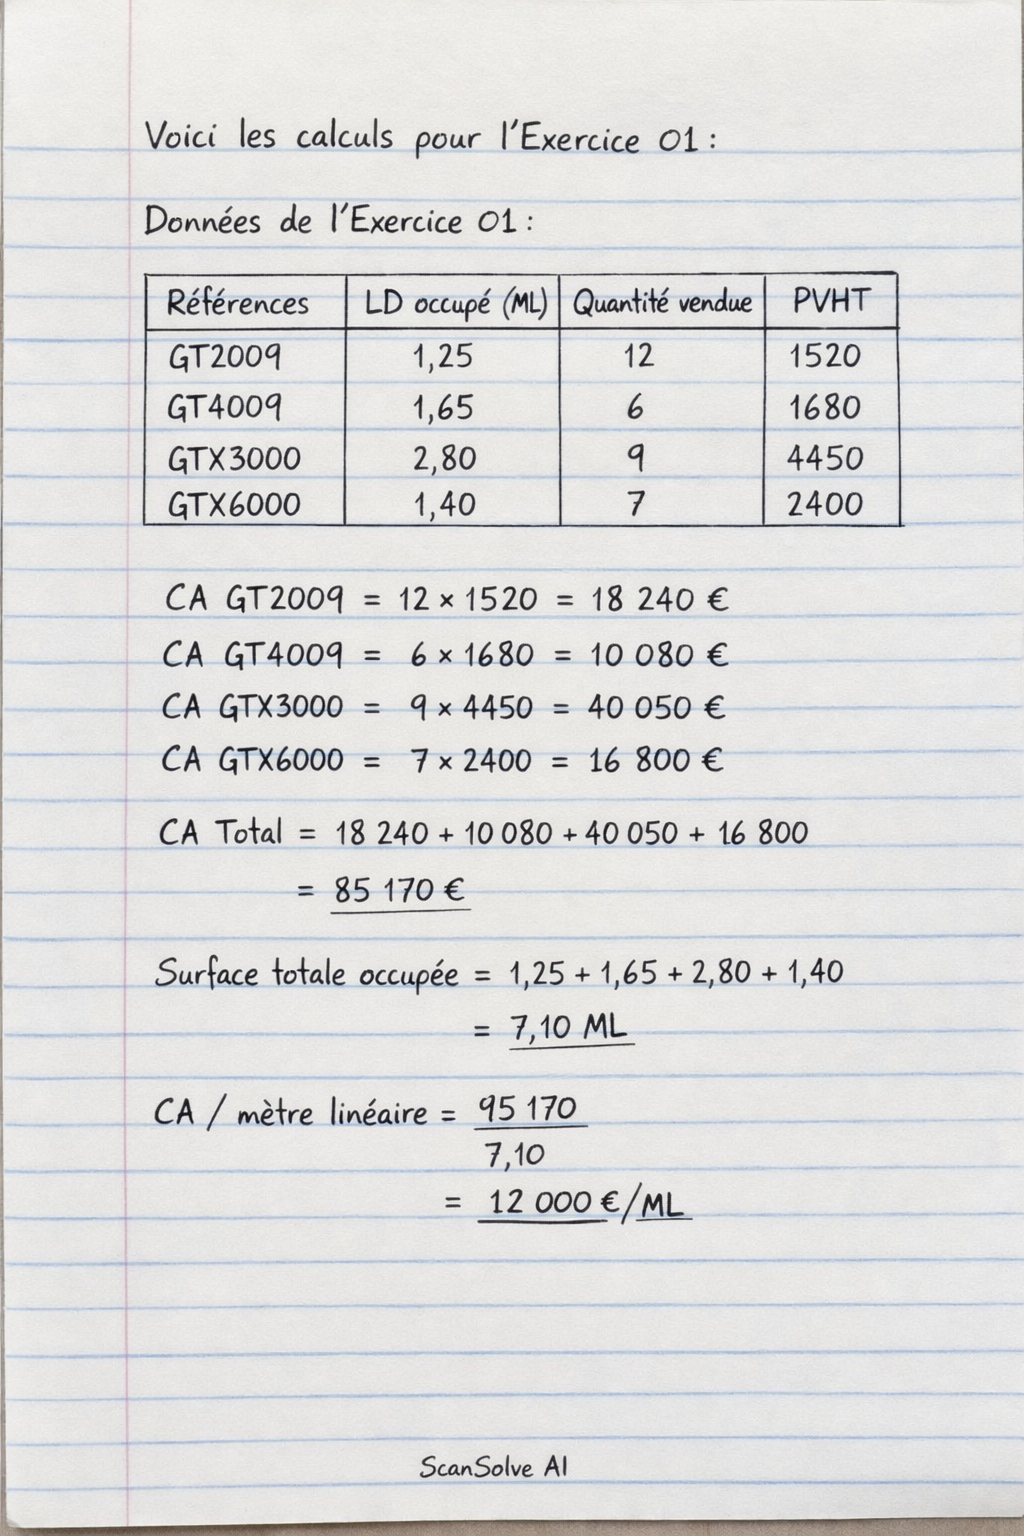 Voici les calculs pour l'Exercice 01 :
Données de l'Exercice 01 :
Références LD occupé (ML) Quantité vendue PVHT
GT2009 1,25 12 1520
GT4009 1,65 6 1680
GTX3000 2,80 9 4450
GTX6000 1,40 7 2400
CA GT2009 = 12 × 1520 = 18 240 €
CA GT4009 = 6 × 1680 = 10 080 €
CA GTX3000 = 9 × 4450 = 40 050 €
CA GTX6000 = 7 × 2400 = 16 800 €
CA Total = 18 240 + 10 080 + 40 050 + 16 800
= 85 170 €
Surface totale occupée = 1,25 + 1,65 + 2,80 + 1,40
= 7,10 ML
CA / mètre linéaire = 95 170
7,10
= 12 000 €/ML
ScanSolve AI